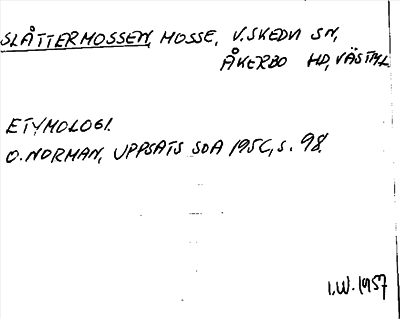 SLÅTTERMOSSEN, MOSSE, V. SKEDVI SN,
ÅKERBO HD, VÄSTML.
ETYMOLOGI.
O. NORMAN, UPPSATS SOA 1956, S. 98.
I.W. 1957